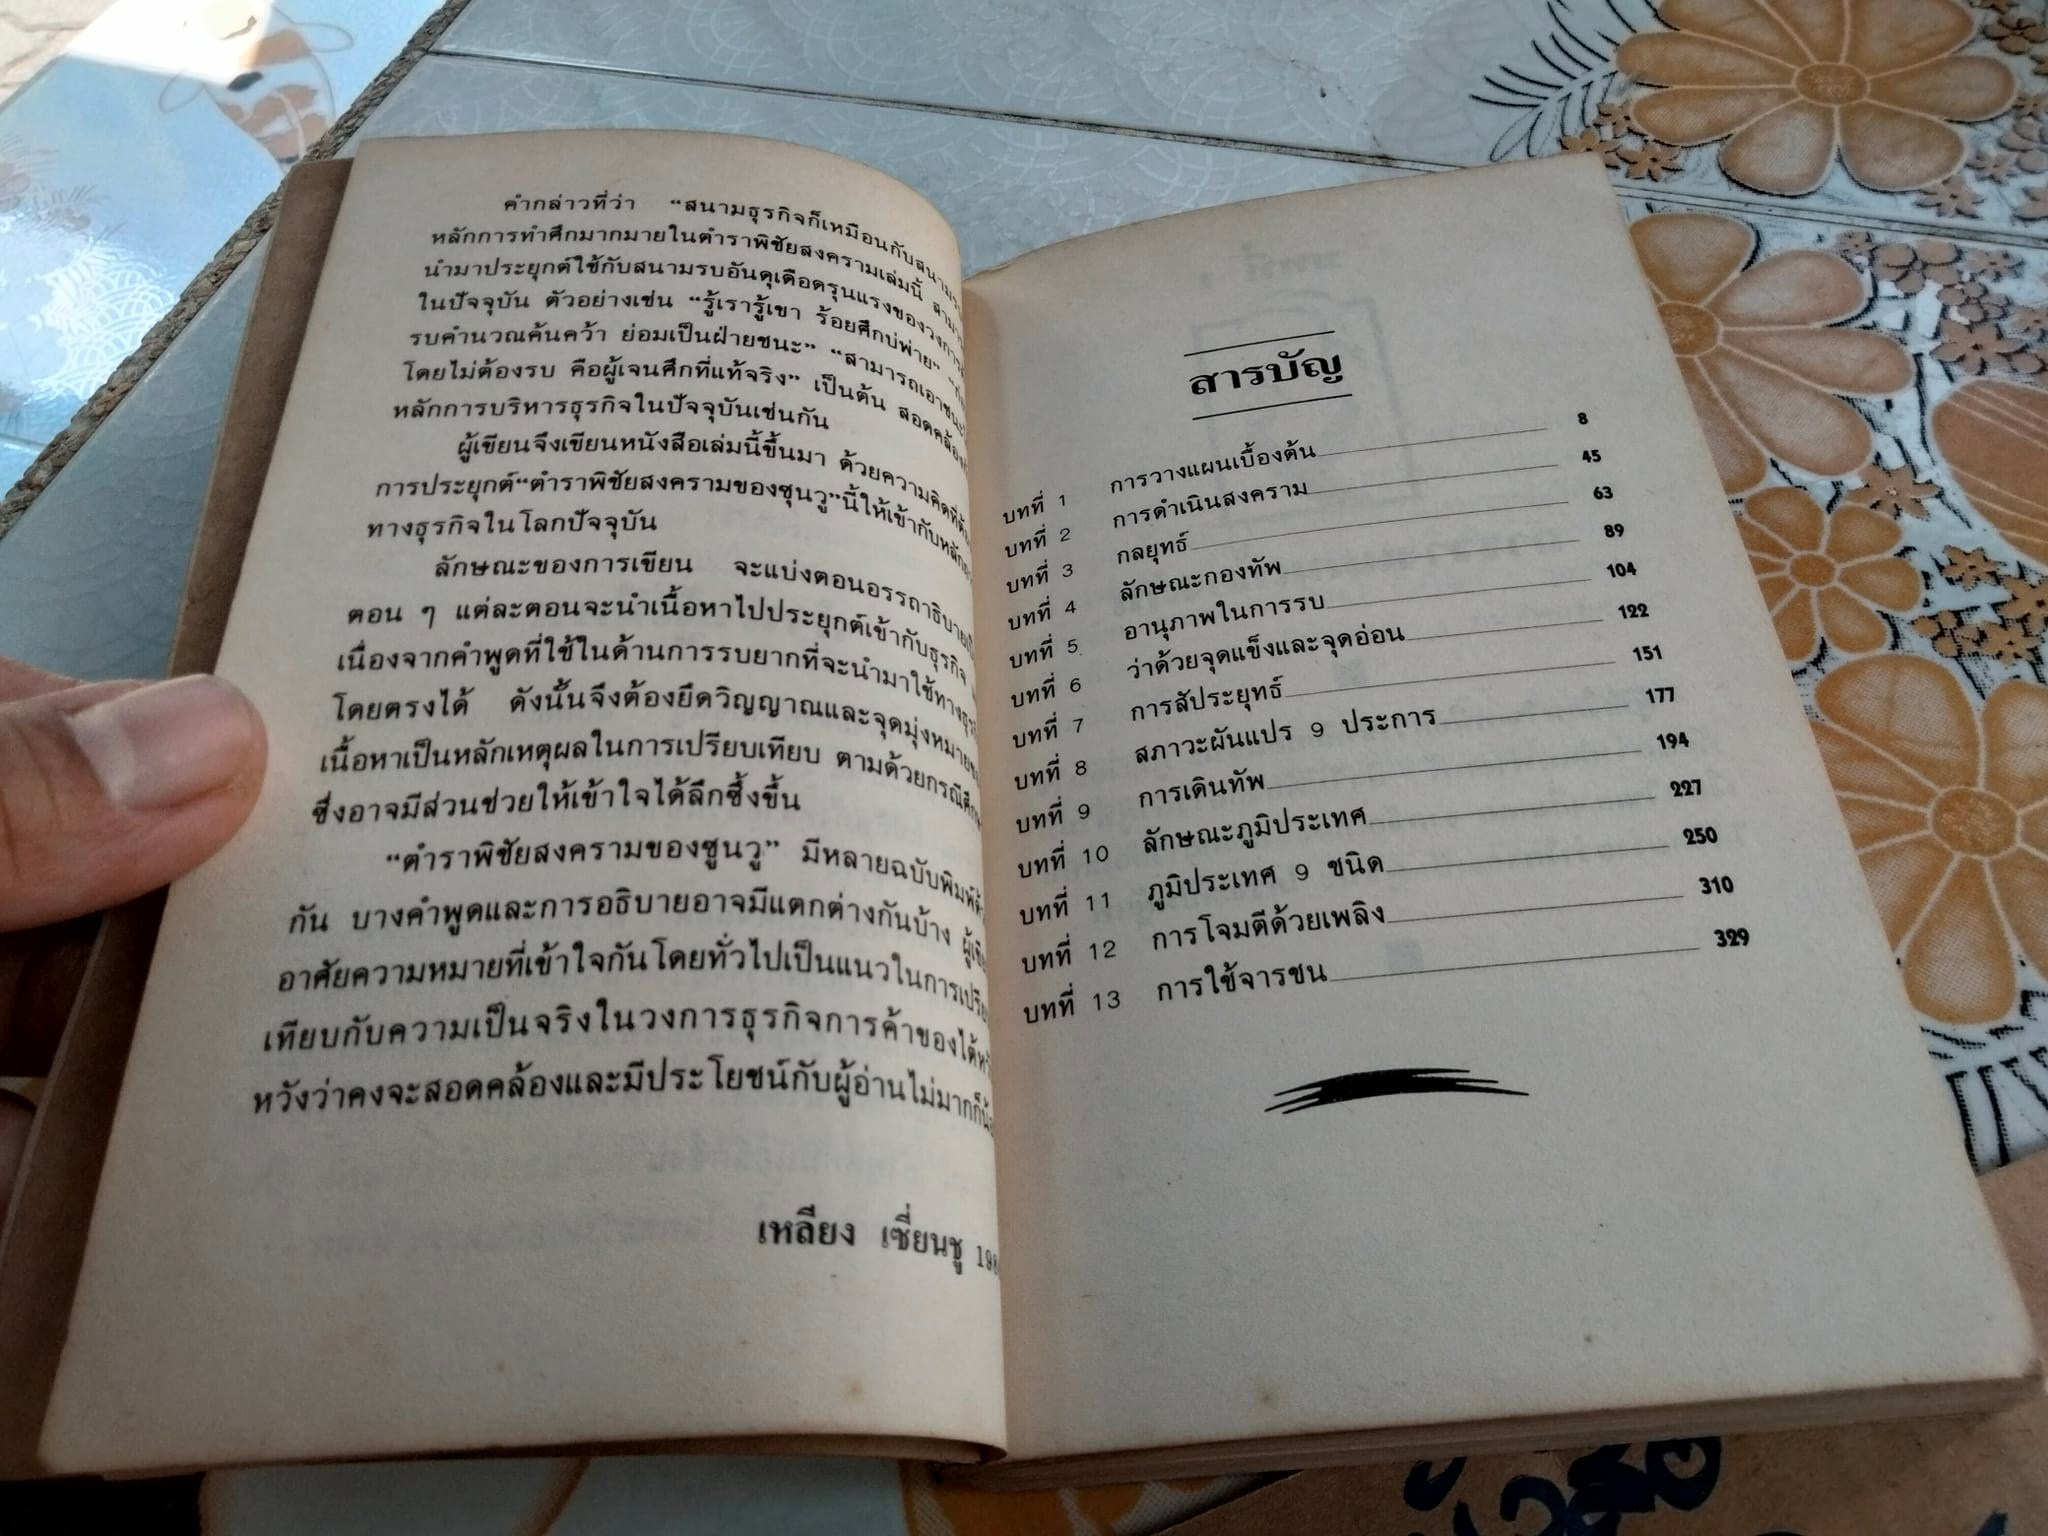 คำกล่าวที่ว่า “สนามธุรกิจก็เหมือนกับสนามรบ
หลักการทำศึกมากมายในตำราพิชัยสงครามเล่มนี้
นำมาประยุกต์ใช้กับสนามรบอันดุเดือดรุนแรงของวงการ
ในปัจจุบัน ตัวอย่างเช่น “รู้เรารู้เขา ร้อยศึกบ่พ่าย”
รบคำนวณค้นคว้า ย่อมเป็นฝ่ายชนะ” “สามารถเอาชนะ
โดยไม่ต้องรบ คือผู้เจนศึกที่แท้จริง” เป็นต้น
หลักการบริหารธุรกิจในปัจจุบันเช่นกัน
ผู้เขียนจึงเขียนหนังสือเล่มนี้ขึ้นมา ด้วยความคิดที่
การประยุกต์“ตำราพิชัยสงครามของซุนวู”นี้ให้เข้ากับ
ทางธุรกิจในโลกปัจจุบัน
ลักษณะของการเขียน จะแบ่งตอนอรรถาธิบาย
ตอน ๆ แต่ละตอนจะนำเนื้อหาไปประยุกต์เข้ากับธุรกิจ
เนื่องจากคำพูดที่ใช้ในด้านการรบยากที่จะนำมาใช้ทาง
โดยตรงได้ ดังนั้นจึงต้องยึดวิญญาณและจุดมุ่งหมาย
เนื้อหาเป็นหลักเหตุผลในการเปรียบเทียบ ตามด้วยกรณี
ซึ่งอาจมีส่วนช่วยให้เข้าใจได้ลึกซึ้งขึ้น
“ตำราพิชัยสงครามของซูนวู” มีหลายฉบับพิมพ์
กัน บางคำพูดและการอธิบายอาจมีแตกต่างกันบ้าง
อาศัยความหมายที่เข้าใจกันโดยทั่วไปเป็นแนวในการ
เทียบกับความเป็นจริงในวงการธุรกิจการค้าของ
หวังว่าคงจะสอดคล้องและมีประโยชน์กับผู้อ่านไม่มากก็
เหลียง เซี่ยนชู
สารบัญ
บทที่ 1 การวางแผนเบื้องต้น 8
บทที่ 2 การดำเนินสงคราม 45
บทที่ 3 กลยุทธ์ 63
บทที่ 4 ลักษณะกองทัพ 89
บทที่ 5 อานุภาพในการรบ 104
บทที่ 6 ว่าด้วยจุดแข็งและจุดอ่อน 122
บทที่ 7 การสัประยุทธ์ 151
บทที่ 8 สภาวะผันแปร 9 ประการ 177
บทที่ 9 การเดินทัพ 194
บทที่ 10 ลักษณะภูมิประเทศ 227
บทที่ 11 ภูมิประเทศ 9 ชนิด 250
บทที่ 12 การโจมตีด้วยเพลิง 310
บทที่ 13 การใช้จารชน 329